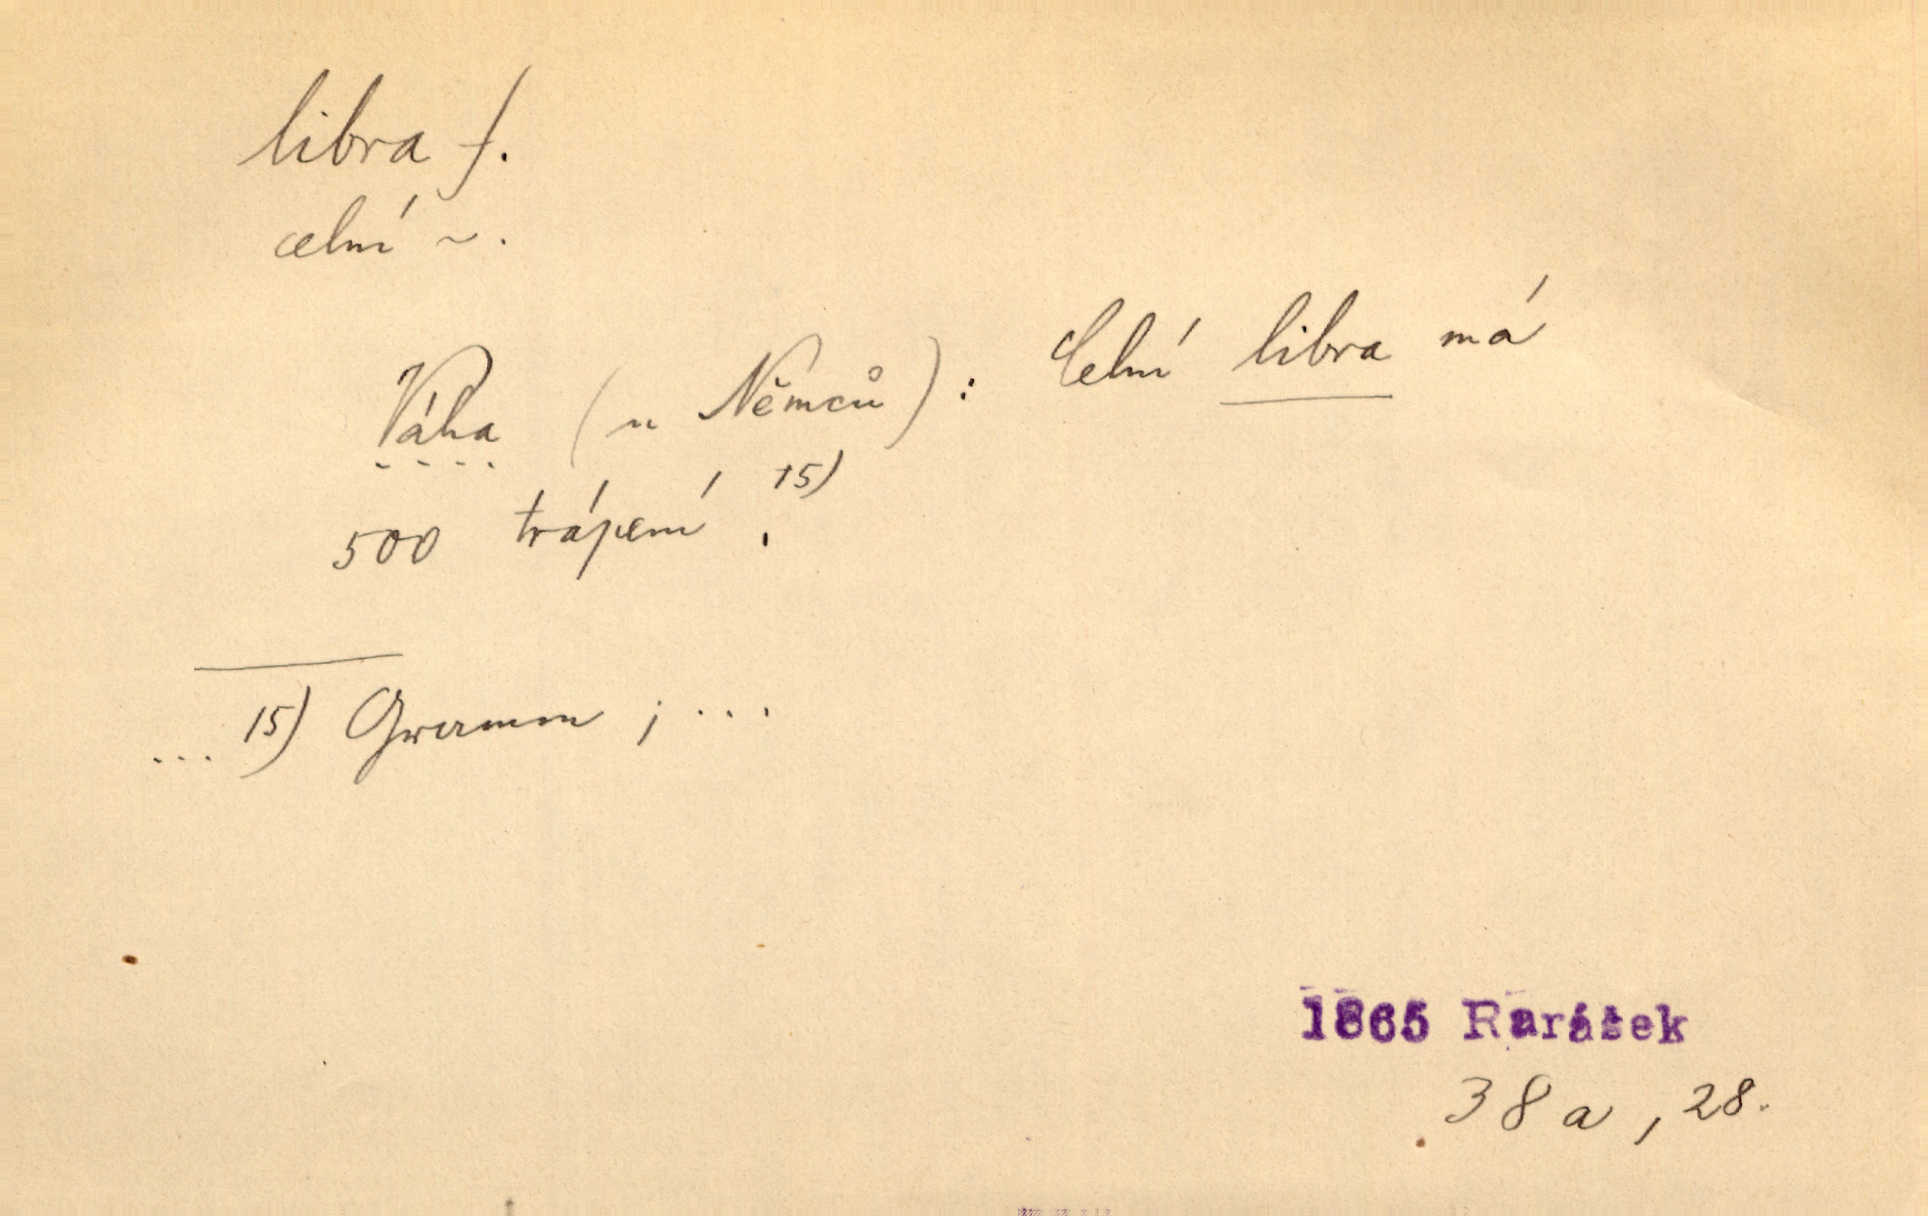 libra f.
celní ~.
Váha (u Němců): Celní libra má
500 trápení.¹⁵⁾
... 15) Gramm; ...
1865 Rarášek
38a, 28.